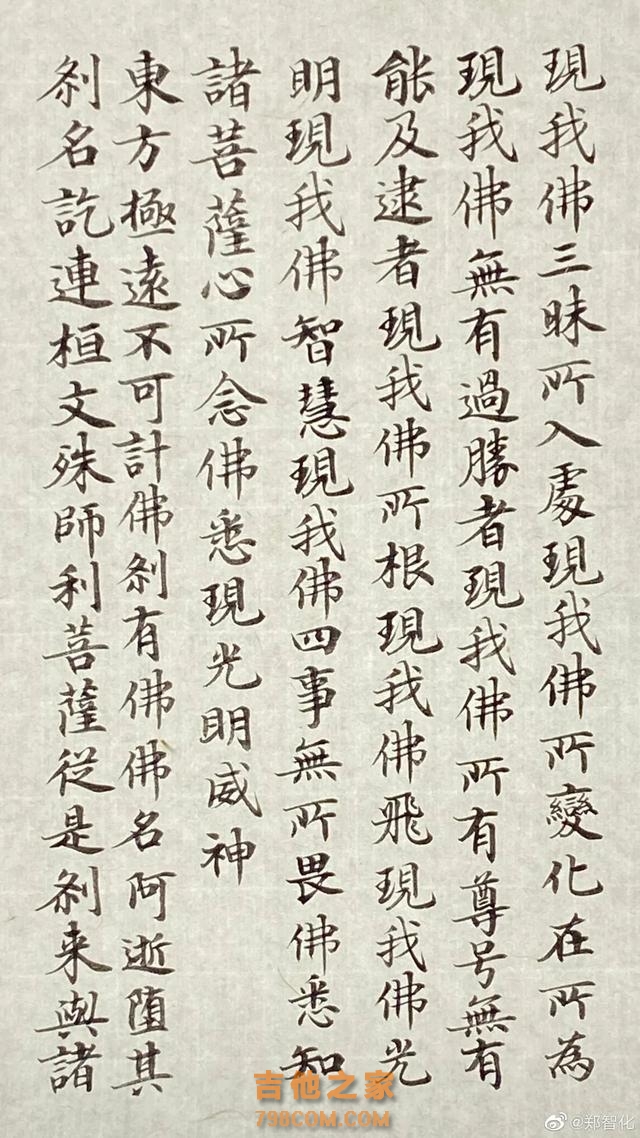 現我佛三昧所入處現我佛所變化在所為
現我佛無有過勝者現我佛所有尊号無有
能及逮者現我佛所根現我佛飛現我佛光
明現我佛智慧現我佛四事無所畏佛悉知
諸菩薩心所念佛悉現光明威神
東方極遠不可計佛刹有佛佛名阿逝墮其
刹名訖連桓文殊師利菩薩從是刹来與諸
吉他之家
798COM.COM
@郑智化